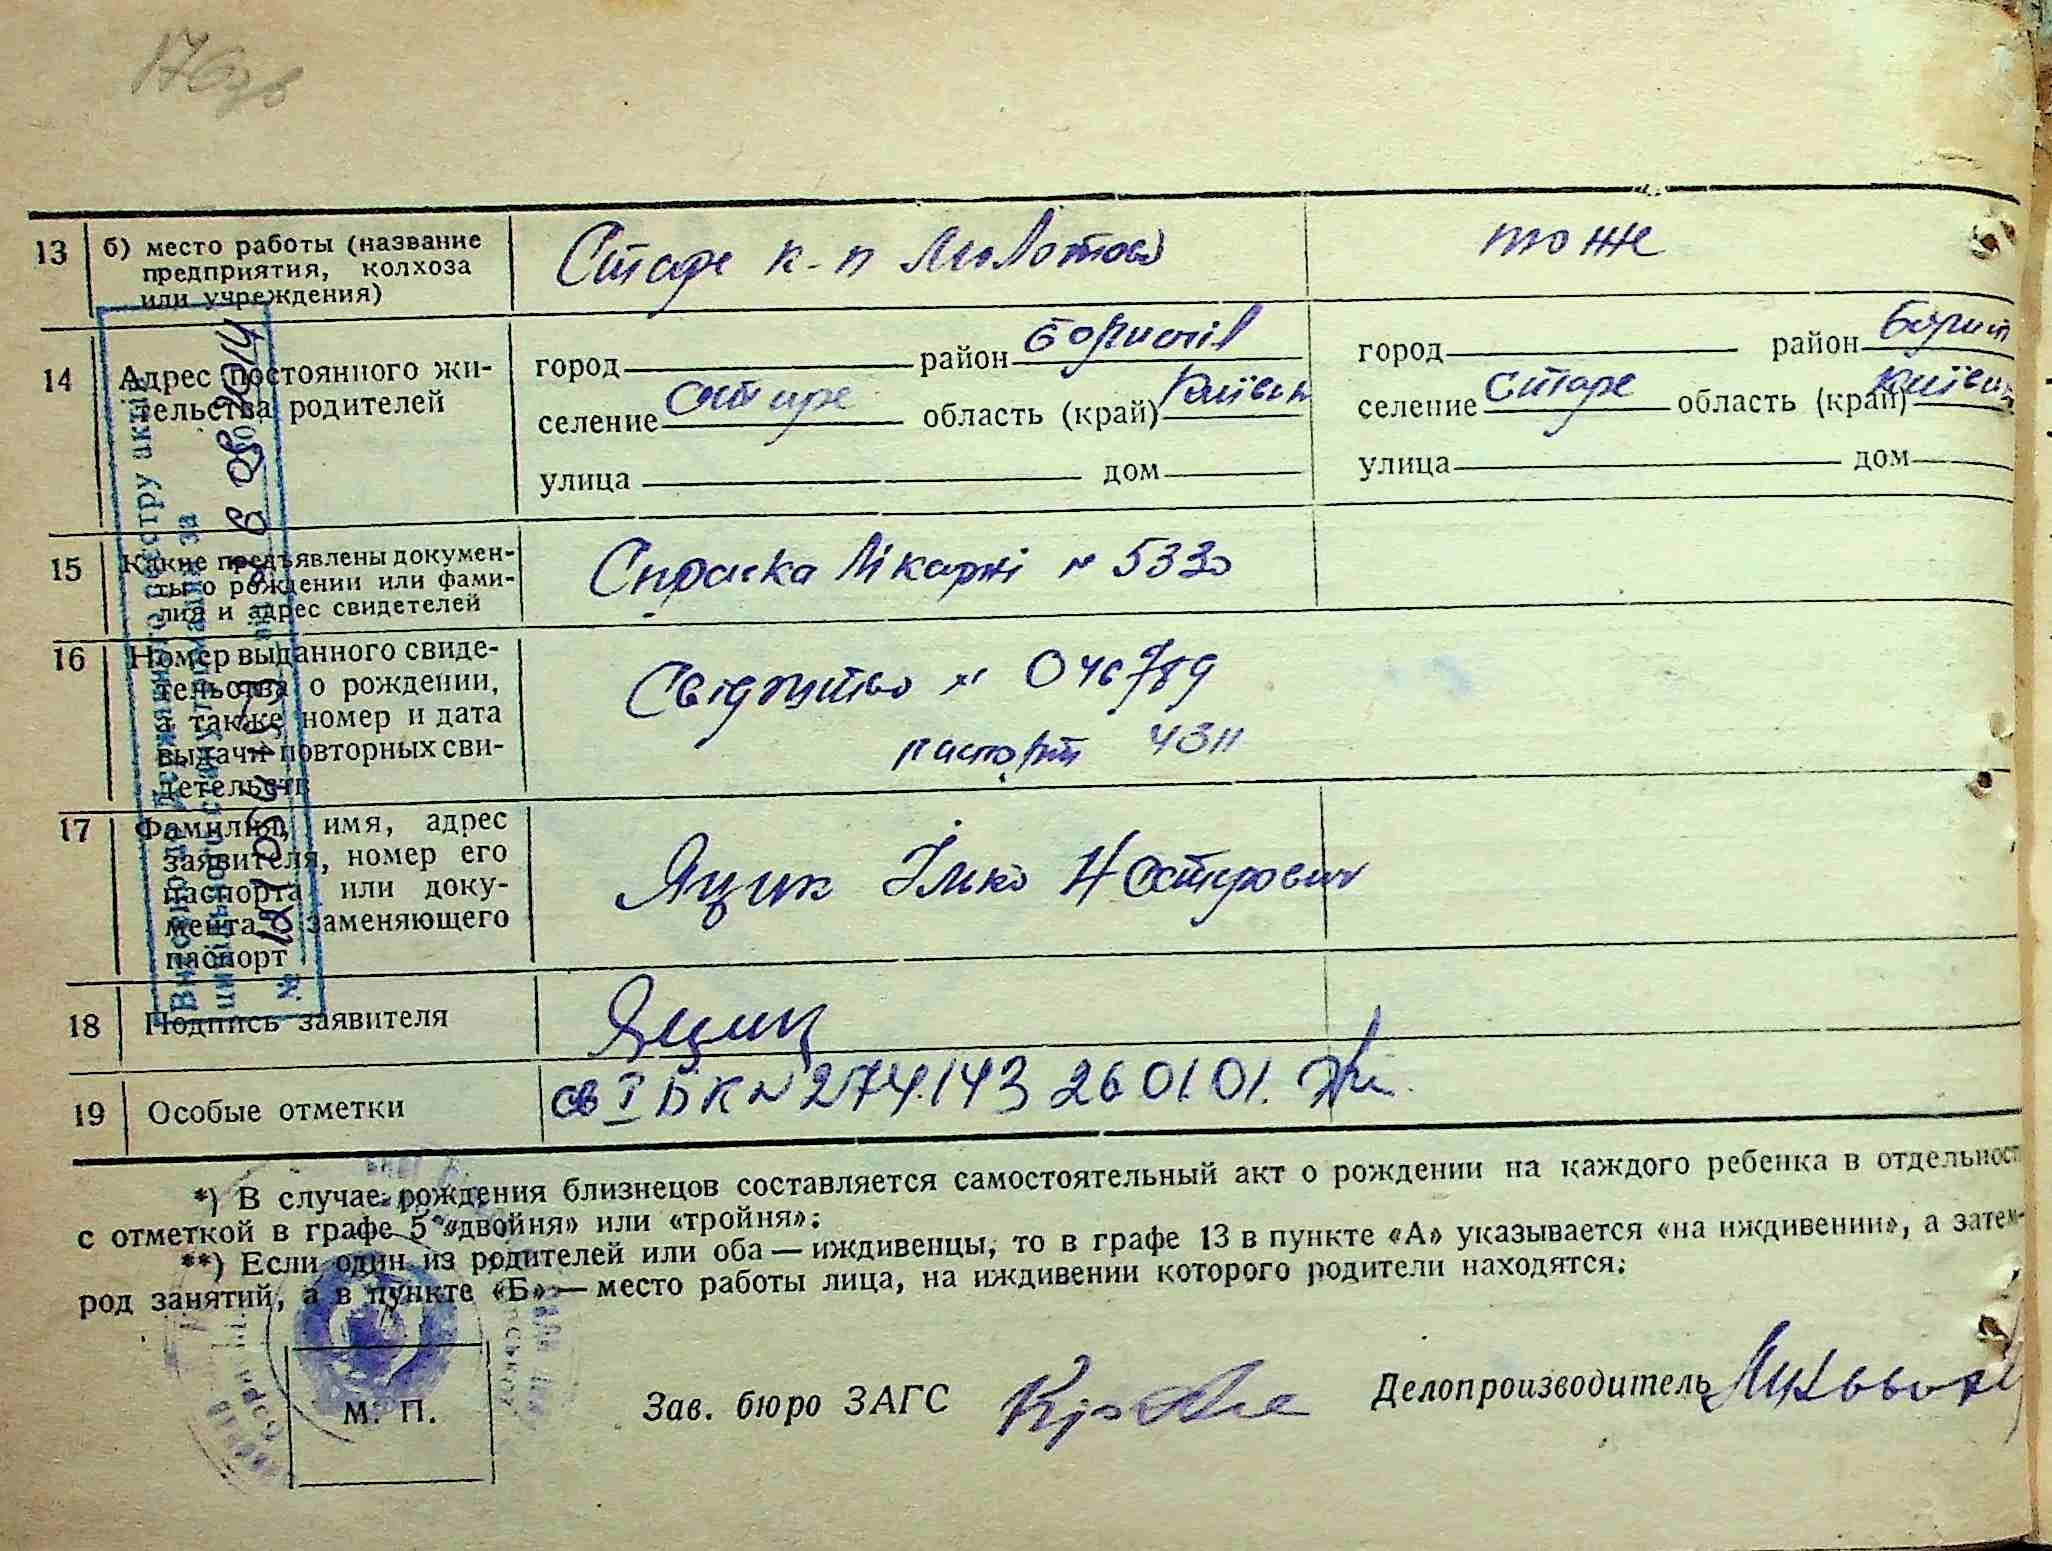 176зв
13 б) место работы (название Старе к-п Молотова тоже
предприятия, колхоза
или учреждения)
14 Адрес постоянного жи-
тельства родителей
город район Бориспіл город район Борисп
селение Старе область (край) Київськ селение Старе область (край) Київськ
улица дом улица дом
15 Какие предъявлены докумен-
ты о рождении или фами-
лия и адрес свидетелей
Справка лікарні № 533
16 Номер выданного свиде-
тельства о рождении,
а также номер и дата
выдачи повторных сви-
детельств
Свідоцтво №
паспорт
17 Фамилия, имя, адрес
заявителя, номер его
паспорта или доку-
мента, заменяющего
паспорт
Яцик Ілько Нестерович
18 Подпись заявителя Яцик
19 Особые отметки св I БК № 274143 26 01 01.
Внесено до Державного реєстру актів
цивільного стану громадян за
№
*) В случае рождения близнецов составляется самостоятельный акт о рождении на каждого ребенка в отдельност
с отметкой в графе 5 «двойня» или «тройня»;
**) Если один из родителей или оба — иждивенцы, то в графе 13 в пункте «А» указывается «на иждивении», а затем-
род занятий, а в пункте «Б» — место работы лица, на иждивении которого родители находятся;
М. П.
Зав. бюро ЗАГС Делопроизводитель